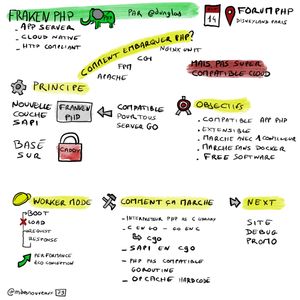 FRAKEN PHP
PAR @dunglas
14
FORUM PHP
DISNEYLAND PARIS
- APP SERVER
- CLOUD NATIVE
- HTTP COMPLIANT
COMMENT EMBARQUER PHP?
NGINX UNIT
CGI
FPM
APACHE
MAIS PAS SUPER
COMPATIBLE CLOUD
PRINCIPE
NOUVELLE
COUCHE
SAPI
FRANKEN
PHP
COMPATIBLE
POUR TOUS
SERVER GO
BASÉ
SUR
CADDY
OBJECTIFS
- COMPATIBLE APP PHP
- EXTENSIBLE
- MARCHE AVEC 1 CONTENEUR
- MARCHE SANS DOCKER
- FREE SOFTWARE
WORKER MODE
BOOT
LOAD
REQUEST
RESPONSE
PERFORMANCE
ECO CONCEPTION
COMMENT ÇA MARCHE
- INTERPRETEUR PHP AS C LIBRARY
- C EN GO - GO EN C
CGO
- SAPI EN CGO
- PHP PAS COMPATIBLE
GOROUTINE
- OPCACHE HARDCODE
NEXT
SITE
DEBUG
PROMO
23